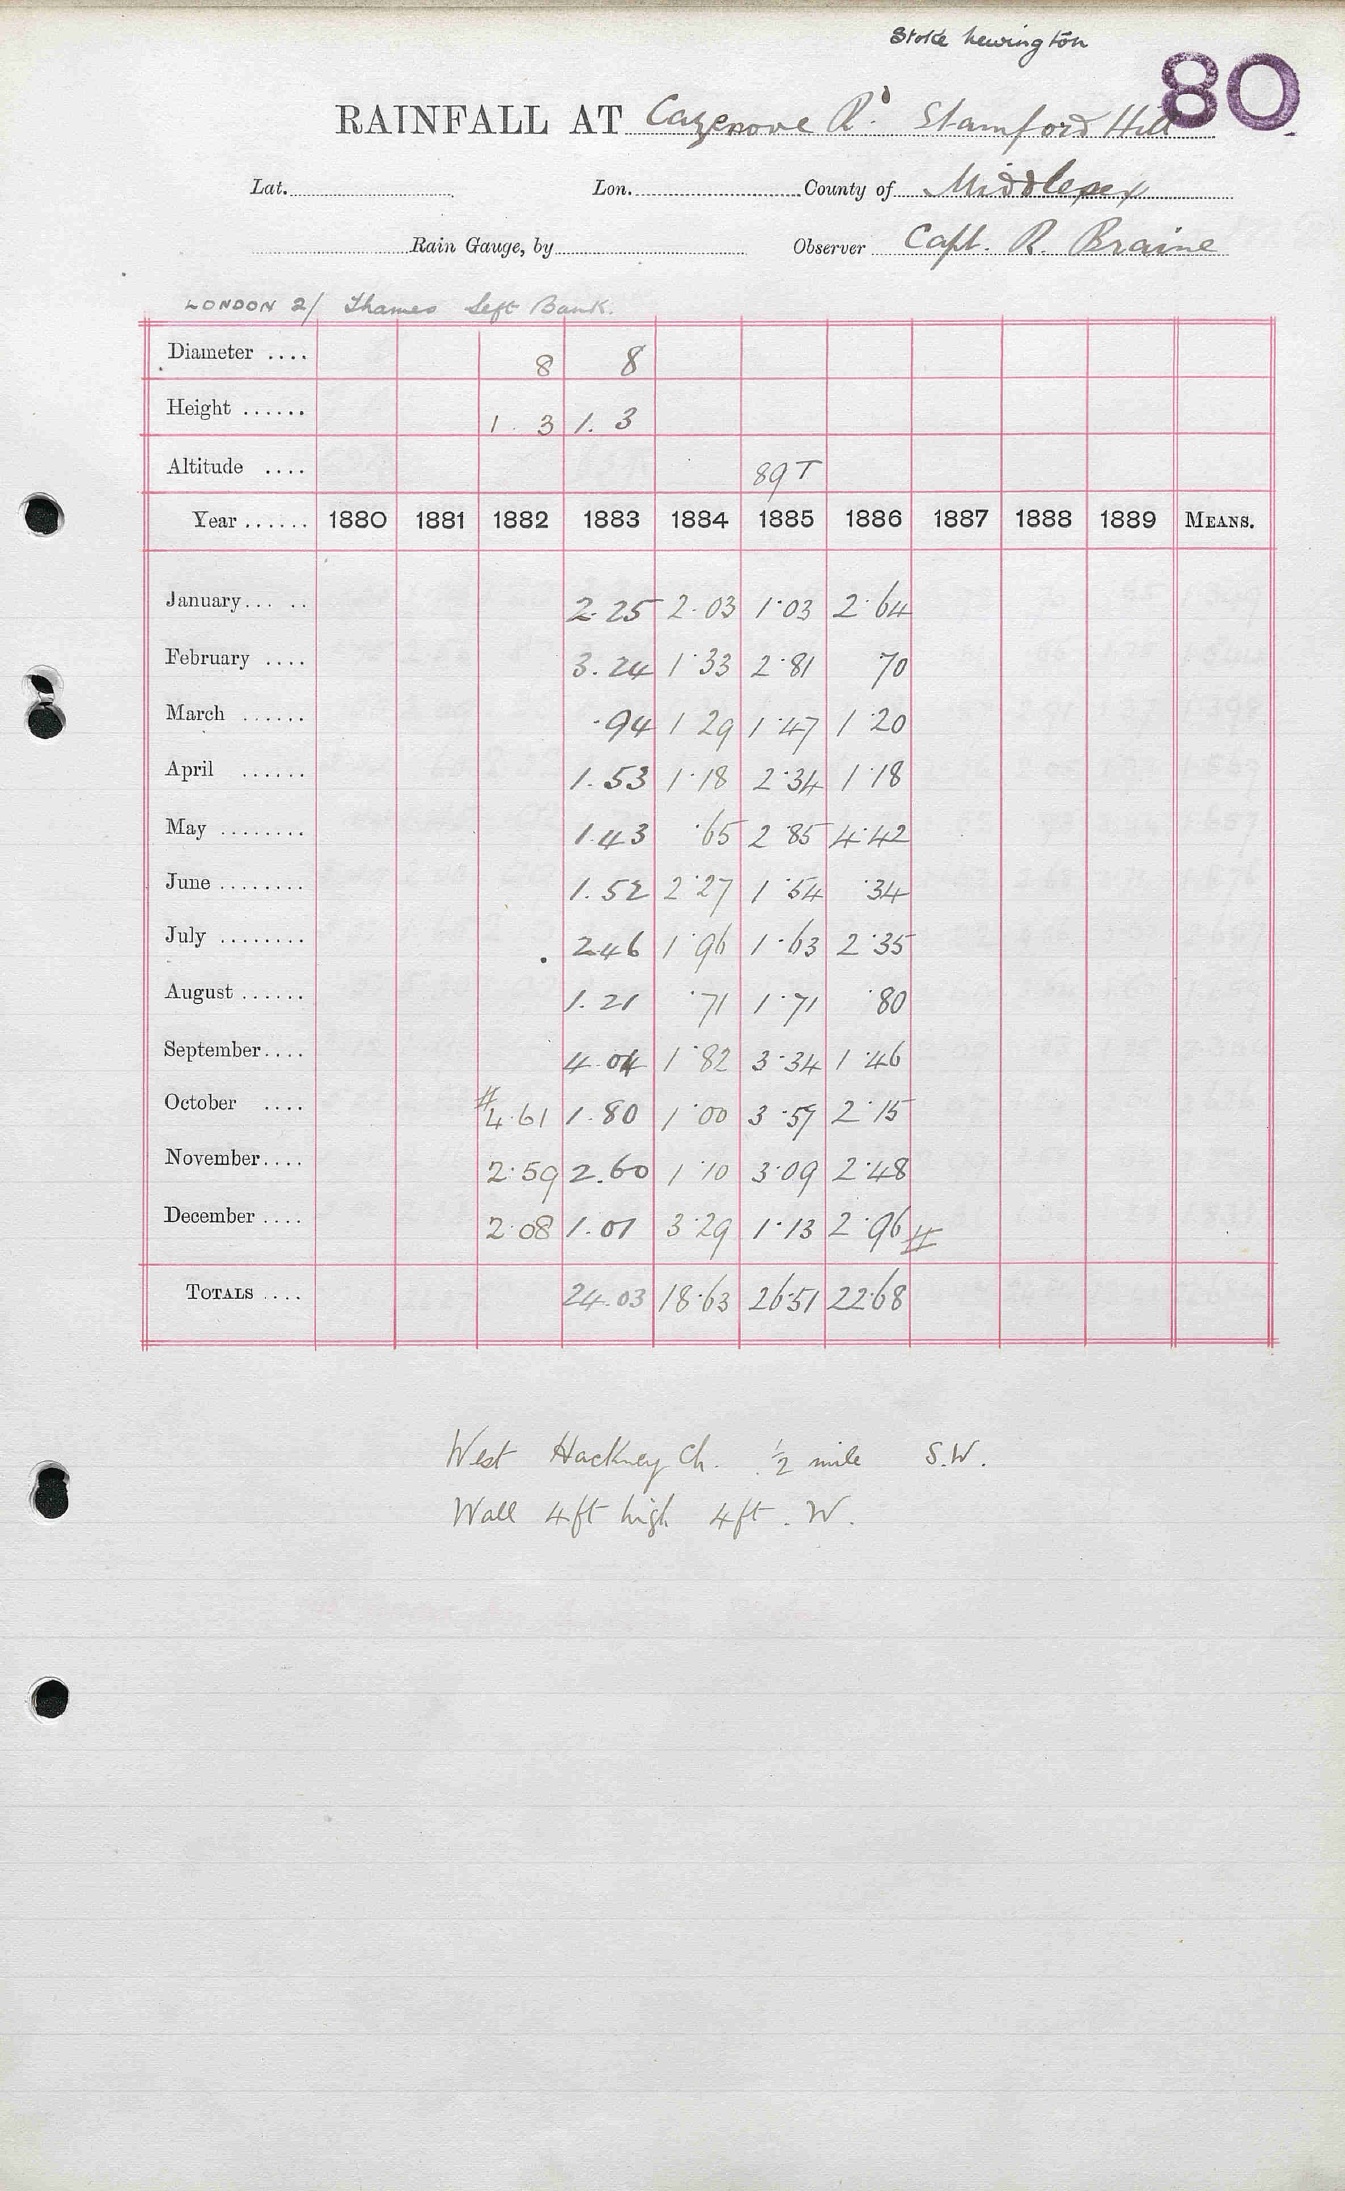 Stoke Newington
80
RAINFALL AT Cazenove Rd. Stamford Hill
Lat. Lon. County of Middlesex
Rain Gauge, by Observer Capt. R. Braine
LONDON 2/ Thames Left Bank.
Diameter .... 8 8
Height ...... 1. 3 1. 3
Altitude .... 89 T
Year ...... 1880 1881 1882 1883 1884 1885 1886 1887 1888 1889 MEANS.
January... .. 2.25 2.03 1.03 2.64
February .... 3.24 1.33 2.81 70
March ...... .94 1 29 1.47 1.20
April ...... 1.53 1.18 2.34 1.18
May ........ 1.43 .65 2.85 4.42
June ........ 1.52 2.27 1.54 .34
July ........ . 2.46 1.96 1.63 2.35
August ...... 1.21 .71 1.71 .80
September.... 4.04 1.82 3.34 1.46
October .... #4.61 1.80 1.00 3.57 2.15
November.... 2.59 2.60 1.10 3.09 2.48
December .... 2.08 1.01 3.29 1.13 2.96 #
TOTALS .... 24.03 18.63 26.51 22.68
West Hackney Ch. ½ mile S.W.
Wall 4ft high 4ft. W.